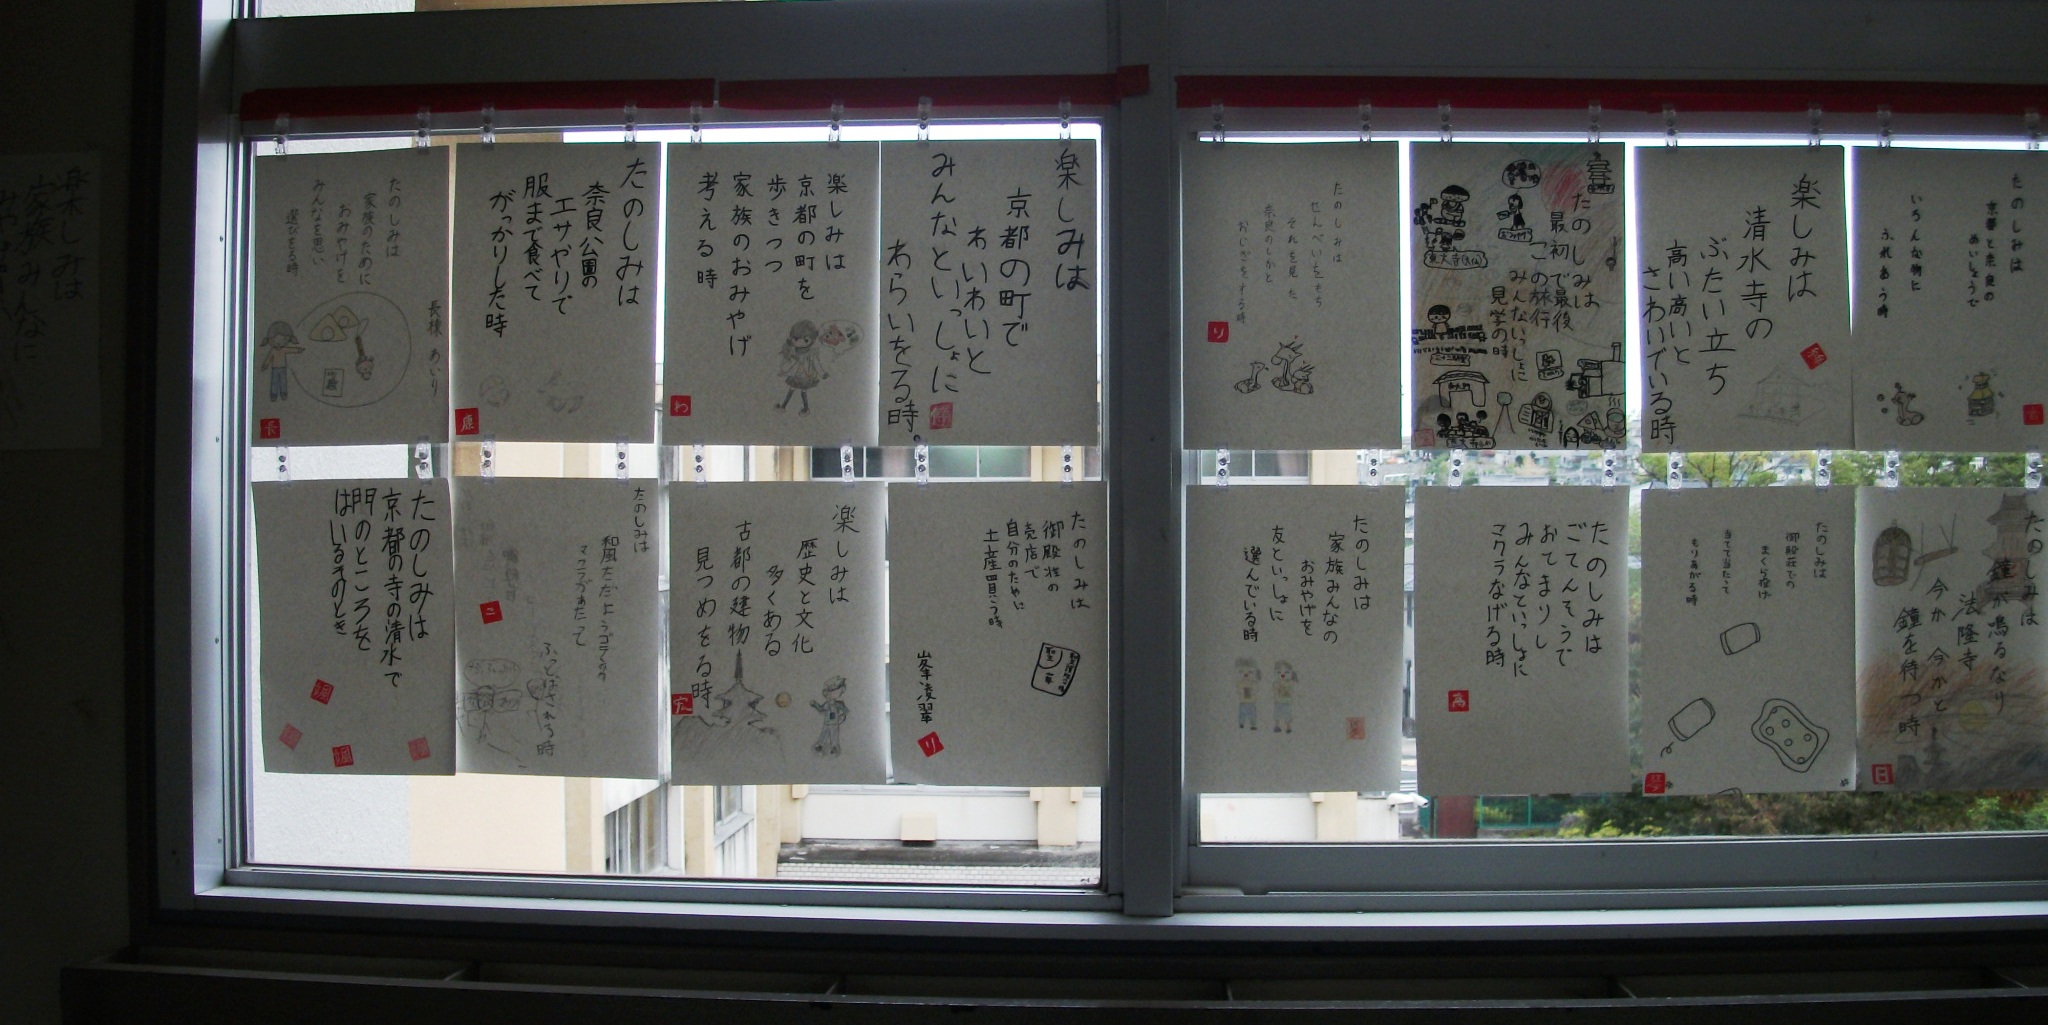 たのしみは
家族のために
おみやげを
みんなを思い
選びをる時
長棟 めいり
長
たのしみは
奈良公園の
エサやりで
服まで食べて
がっかりした時
原
楽しみは
京都の町を
歩きつつ
家族のおみやげ
考える時
わ
楽しみは
京都の町で
わいわいと
みんなといっしょに
わらいをる時
たのしみは
せんべいをもち
それを見た
奈良のしかと
おじぎをする時
り
たのしみは
最初で最後
この旅行
みんないっしょに
見学の時
楽しみは
清水寺の
ぶたい立ち
高い高いと
さわいでいる時
たのしみは
京都と奈良の
めいしょうで
いろんな物に
ふれあう時
たのしみは
京都の寺の清水で
門のところを
はいるそのとき
たのしみは
こ
楽しみは
歴史と文化
多くある
古都の建物
見つめをる時
宍
たのしみは
御殿荘の
売店で
自分のために
土産買う時
峯凌翠
リ
たのしみは
家族みんなの
おみやげを
友といっしょに
選んでいる時
たのしみは
ごてんそうで
おとまりし
みんなといっしょに
マクラなげる時
高
たのしみは
御殿荘での
まくら投げ
当てて当たって
もりあがる時
たのしみは
鐘が鳴るなり
法隆寺
今か今かと
鐘を待つ時
日
楽しみは
家族みんなに